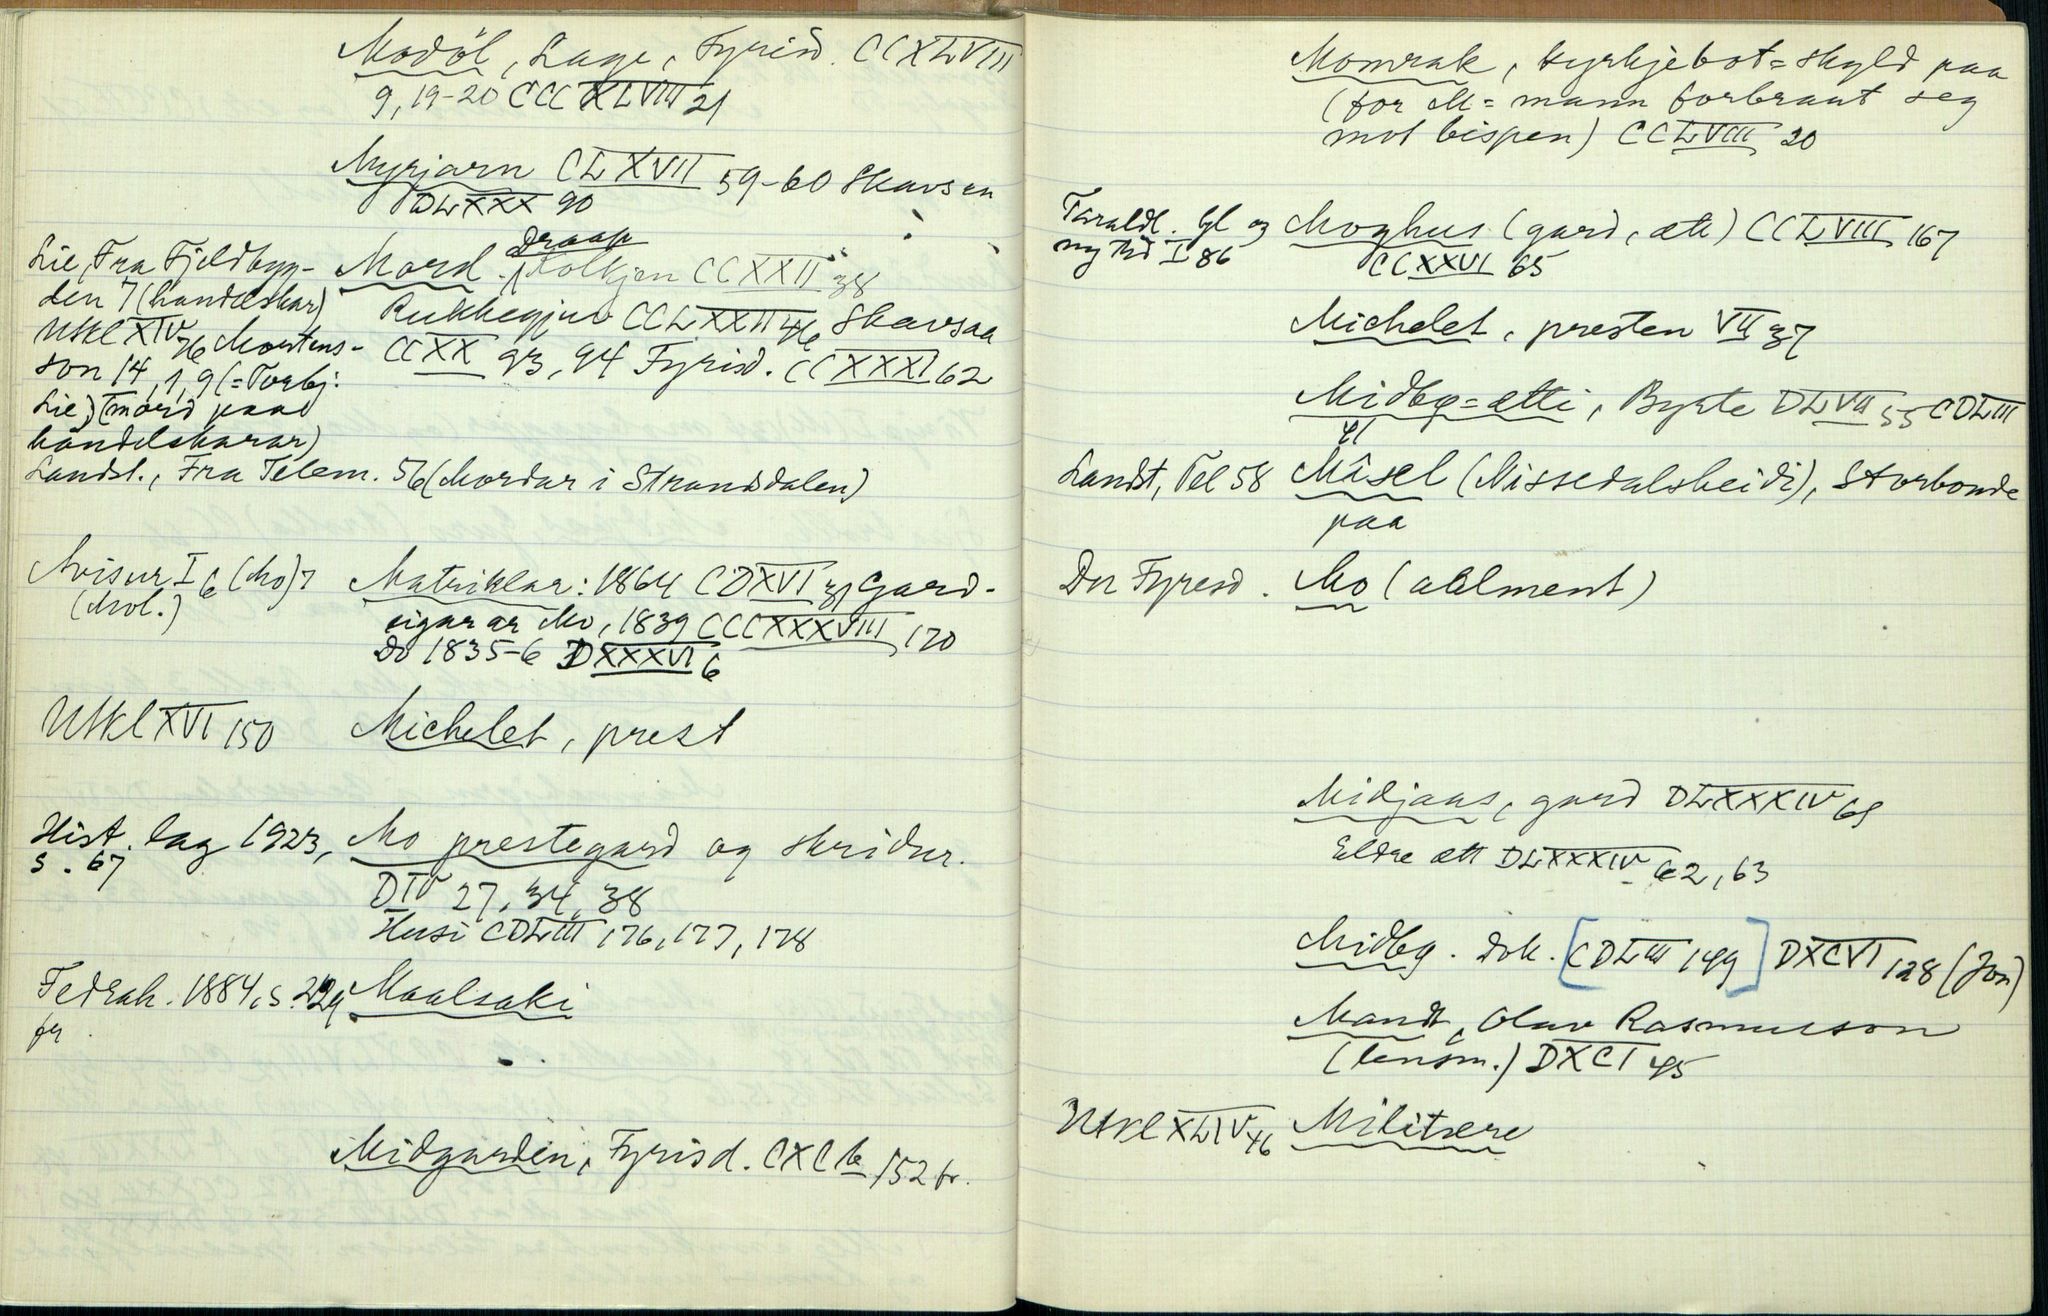 Modöl, Lage, Fyrisd. CCXLVIII
9, 19-20 CCCXLVIII 21
Myrjarn CLXVII 59-60 Skavsaa
DLXXX 90
Lie, Fra Fjeldbyg-
den 7 (handelskar)
Utkl XIV 76 Mortens-
son 14, 1, 9 (= Torbj:
Lie) (mord paa
handelskarar)
Landst., Fra Telem. 56 (Mordar i Strandsdalen)
Mord. Draap CCXXII 38
CCLXXII 46 Skavsaa
CCXX 93, 94 Fyrisd. CCXXXI 62
Avisur I 6 (Mo) 7
(Mol.)
Matriklar: 1864 CDXVI 31 Gard-
eigarar Mo, 1839 CCCXXXVIII 170
Do 1835-6 DXXXVI 6
Utkl XVI 150 Michelet, prest
Hist. lag 1923, Mo prestegard og skridur.
s. 67
DIV 27, 34, 38
Husi CDLIII 176, 177, 178
Fedrah. 1884, s. Maalsaki
fr.
Midgarden, Fyrisd. CXC b 152 fr.
Momrak, kyrkjebot = skyld paa
(for M = mann forbraut seg
mot bispen) CCLVIII 20
Taraldl. Gl og
ny tid I 86
Moghus (gard, ætt) CCLVIII 167
CCXXVI 65
Michelet, presten VII 37
Midbø = ætti, Bykle DLVII 55 CDLIII
41
Landst, Tel 58 Mâsel (Nissedalsheidi), Storbonde
paa
Der Fyresd. Mo (ablment)
Midjaas, gard DLXXXIV 69
Eldre ætt DLXXXIV 62, 63
Midbø. dok. [CDLIII 149] DXCVI 128 (Jon)
Mandt, Olav Rasmusson
(lensm.) DXCI 45
Utkl XLIV 46 Militære